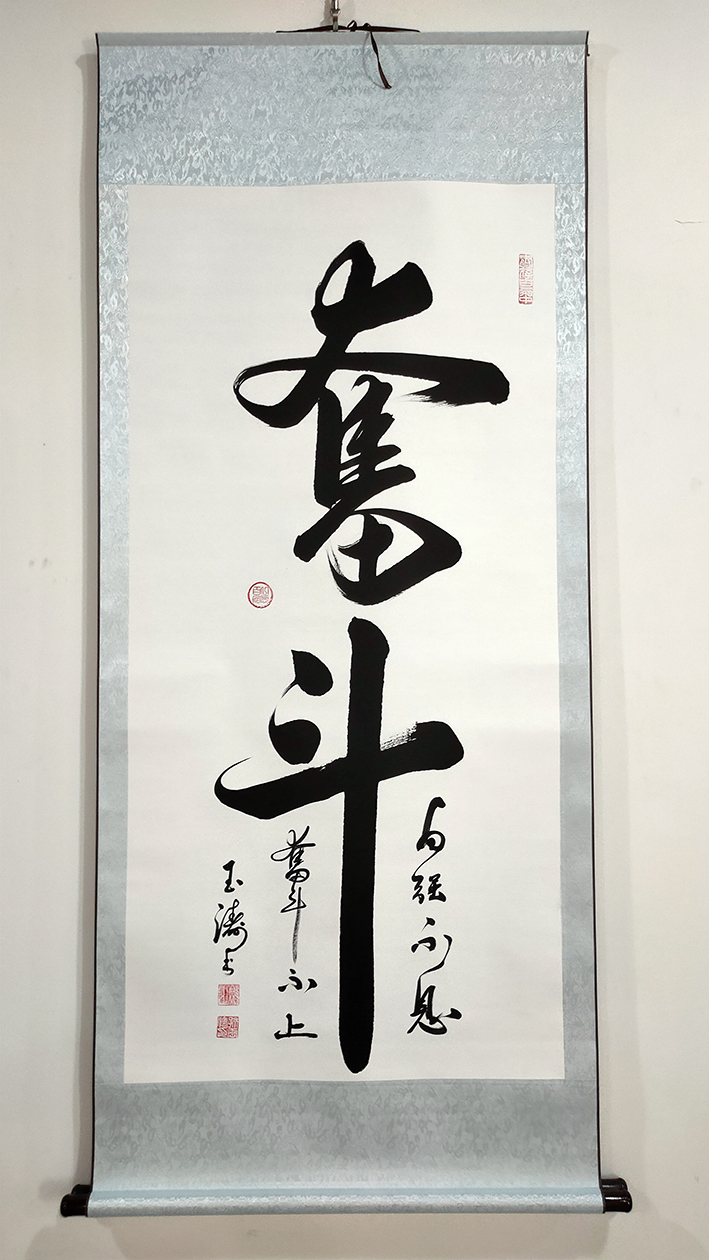 奮斗
自强不息
奮斗不止
玉涛书